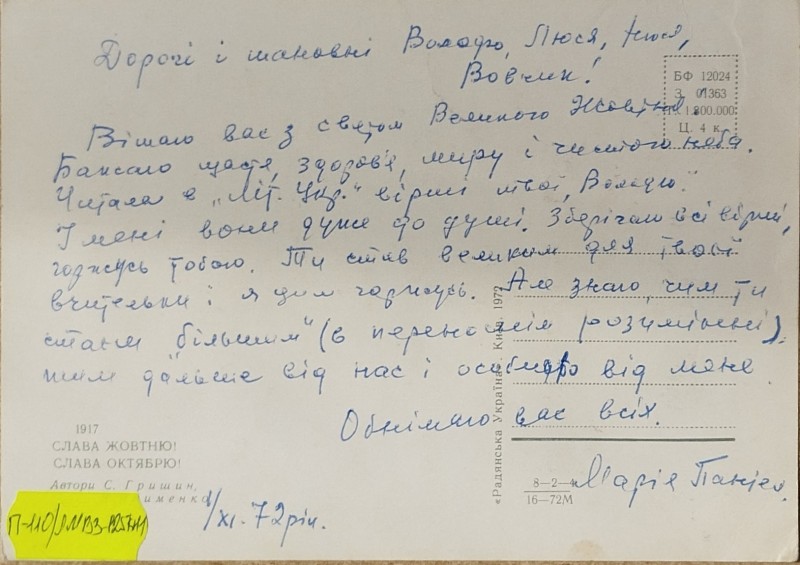 Дорогі і шановні Володю, Люся, Нюся,
Вовчик!
Вітаю вас з святом Великого Жовтня.
Бажаю щастя, здоров'я, миру і чистого неба.
Читала в „Літ. Укр." вірші твої, Володю.
І мені вони дуже до душі. Зберігаю всі вірші,
горжусь тобою. Ти став великим для твоєї
вчительки і я цим горжусь. Але знаю, чим ти
станеш „більшим" (в переноснім розумінні),
тим дальше від нас і особливо від мене.
Обнімаю вас всіх.
Марія
1/XI. 72 рік.
БФ 12024
З. 01363
1.800.000
Ц. 4 к.
1917
СЛАВА ЖОВТНЮ!
СЛАВА ОКТЯБРЮ!
Автори С. Гришин,
«Радянська Україна». Київ. 1972
8—2—4
16—72М